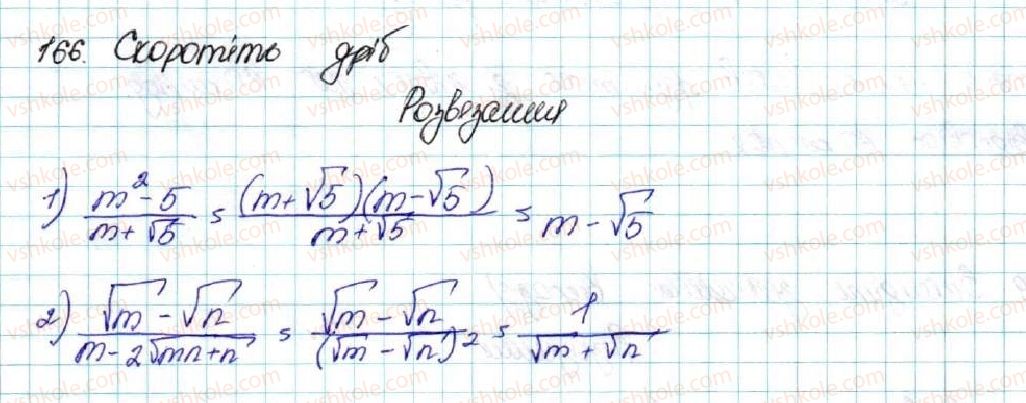 166. Скоротіть дріб
Розвязання
1) \frac{m^2 - 5}{m + \sqrt{5}} = \frac{(m + \sqrt{5})(m - \sqrt{5})}{m + \sqrt{5}} = m - \sqrt{5}
2) \frac{\sqrt{m} - \sqrt{n}}{m - 2\sqrt{mn + n}} = \frac{\sqrt{m} - \sqrt{n}}{(\sqrt{m} - \sqrt{n})^2} = \frac{1}{\sqrt{m} + \sqrt{n}}